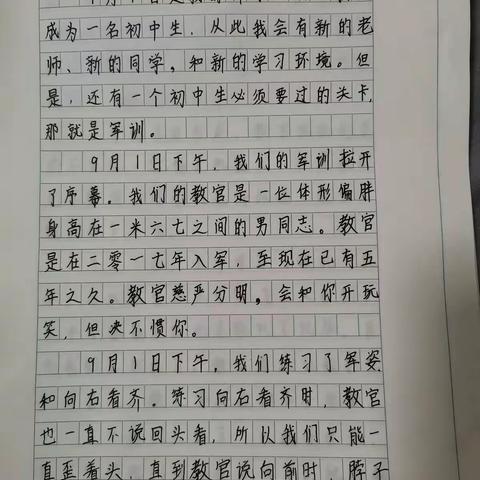 成为一名初中生，从此我会有新的老
师、新的同学，和新的学习环境。但
是，还有一个初中生必须要过的关卡，
那就是军训。
9月1日下午，我们的军训拉开
了序幕。我们的教官是一位体形偏胖
身高在一米六七之间的男同志。教官
是在二零一七年入军，至现在已有五
年之久。教官慈严分明。会和你开玩
笑，但决不惯你。
9月1日下午，我们练习了军姿
和向右看齐。练习向右看齐时，教官
也一直不说回头看，所以我们只能一
直歪着头，直到教官说向前时，脖子